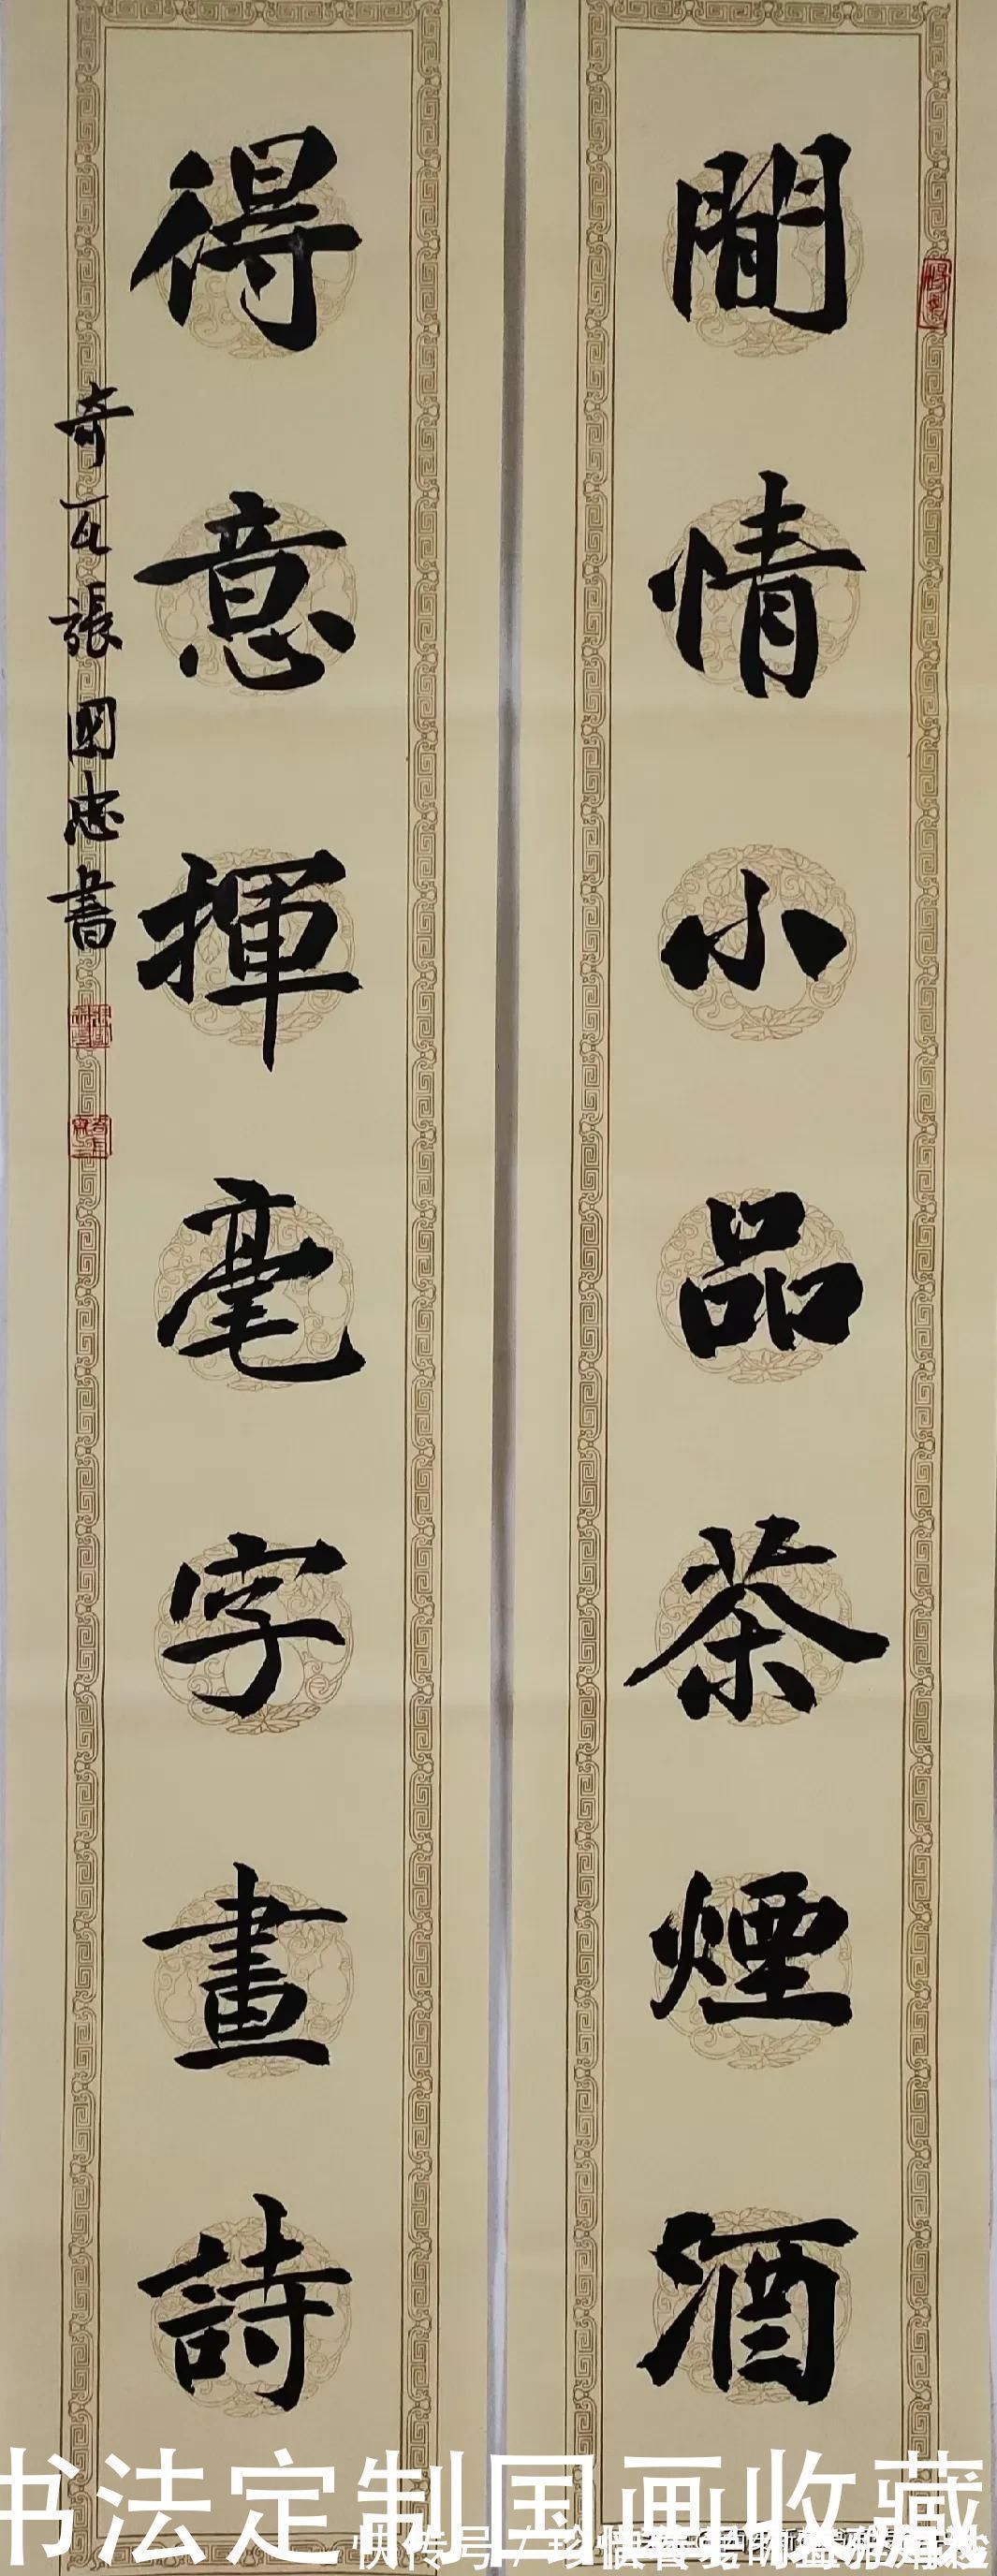 閒情小品茶煙酒
得意揮毫字畫詩
奇瓦張國忠書
书法定制国画收藏
快传号/